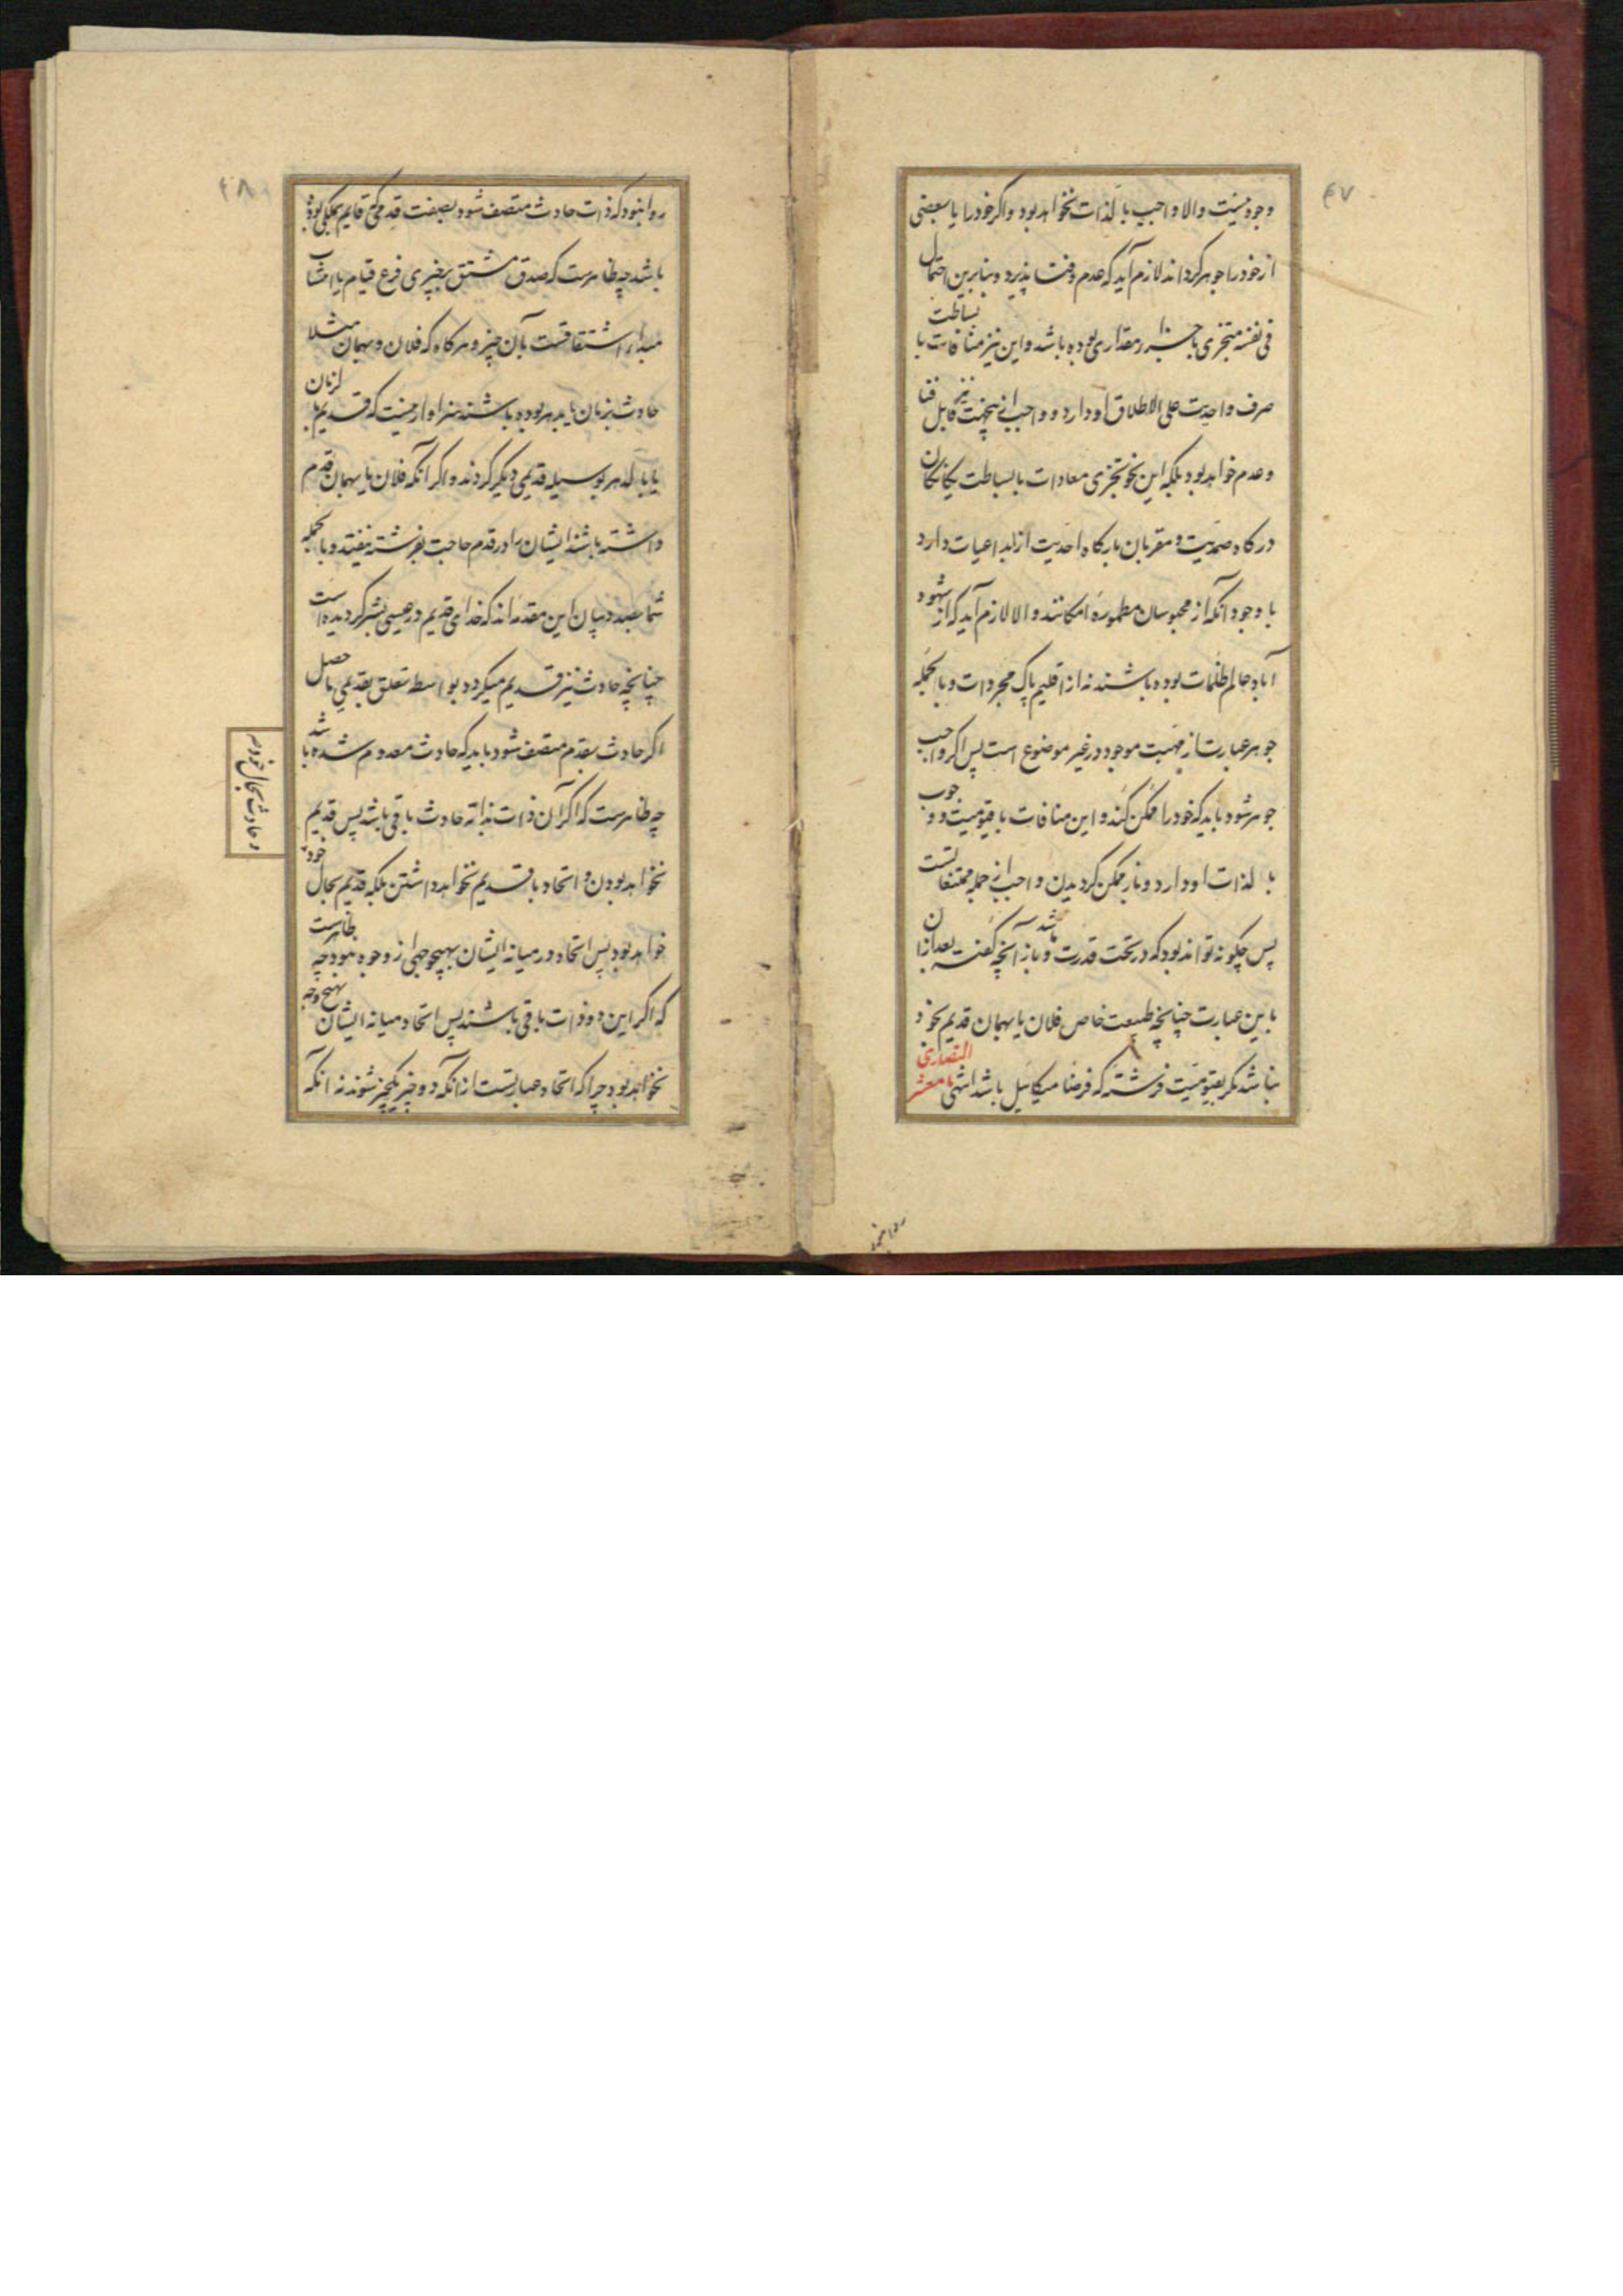 ۴۷
وجود نیست والا واجب بالذات نخواهد بود و اگر خود را یا بعضی
از خود را جوهر گرداند لازم آید که عدم و فنا پذیرد و بنابرین احتمال
فی نفسه متجزی باجزاء مقداری بوده باشد و این نیز منافات با بساطت
صرف و احدیت علی الاطلاق او دارد و واجب ازینجهت نیز قابل فنا
و عدم خواهد بود بلکه این نحو تجزی معادات بالبساطت یکانکان
درکاه صمدیت و مقربان بارکاه احدیت از ابداعیات دارد
با وجود آنکه از محبوسان مطموره امکانند والا لازم آید که از شهود
آباد عالم ظلمات بوده باشند نه از اقلیم پاک مجردات و بالجمله
جوهر عبارت از مهیت موجود در غیر موضوع است پس اگر واجب
جوهر شود باید که خود را ممکن کند و این منافات با قیومیت و وجوب
بالذات او دارد و نیز ممکن کردیدن واجب از جمله ممتنعاتست
پس چگونه تواند بود که در تحت قدرت باشد و باز آنچه گفته بعد ازان
باین عبارت چنانچه طبیعت خاص فلان یا بهمان قدیم بخود
نباشد مگر بقیومیت فرشته که فرضا میکائیل باشد انتهی یا معشر النصاری
روا نبود
۴۸
روا نبود که ذات حادث متصف شود بصفت قدمی که قایم بملکی بوده
باشد چه ظاهرست که صدق مشتق بر چیزی فرع قیام یا انتساب
مبداء اشتقاقست بآن چیز و هرکاه که فلان و بهمان مثلا
حادث بزمان یا بدهر بوده باشند سزاوار نیست که قدیم بالزمان
یا بالدهر بوسیله قدیمی دیگر گردند و اگر آنکه فلان یا بهمان قدم
داشته باشند ایشان را در قدم حاجت بفرشته نیفتد و بالجمله
شما بصدد بیان این مقدمه اند که خدای قدیم در عیسی بشر گردیده است
چنانچه حادث نیز قدیم میگردد بواسطه تعلق بقدیمی با حصل
اگر حادث بقدم متصف شود باید که حادث معدوم شده باشد
چه ظاهرست که اگر آن ذات بذاته حادث باقی باشد پس قدیم
نخواهد بودن و اتحاد با قدیم نخواهد داشتن بلکه قدیم بحال خود
خواهد بود پس اتحاد در میانه ایشان بهیچ وجهی از وجوه نبود چه ظاهرست
که اگر این دو ذات باقی باشند پس اتحاد میانه ایشان بهیچ وجه
نخواهد بود چرا که اتحاد عبارتست از آنکه دو چیز یکچیز شوند نه آنکه
و حادث بحال خود